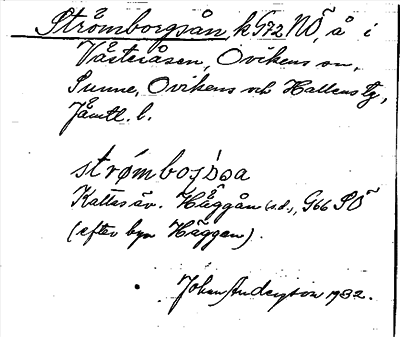 Strömborgsån k G72 NÖ, å i
Västeråsen, Ovikens sn,
Sunne, Ovikens och Hallens tg,
Jämtl. l.
strømbosj̀o̯a
Kallas äv. Häggån (s.d.), G66 SÖ
(efter byn Häggen).
Johan Anderson 1932.